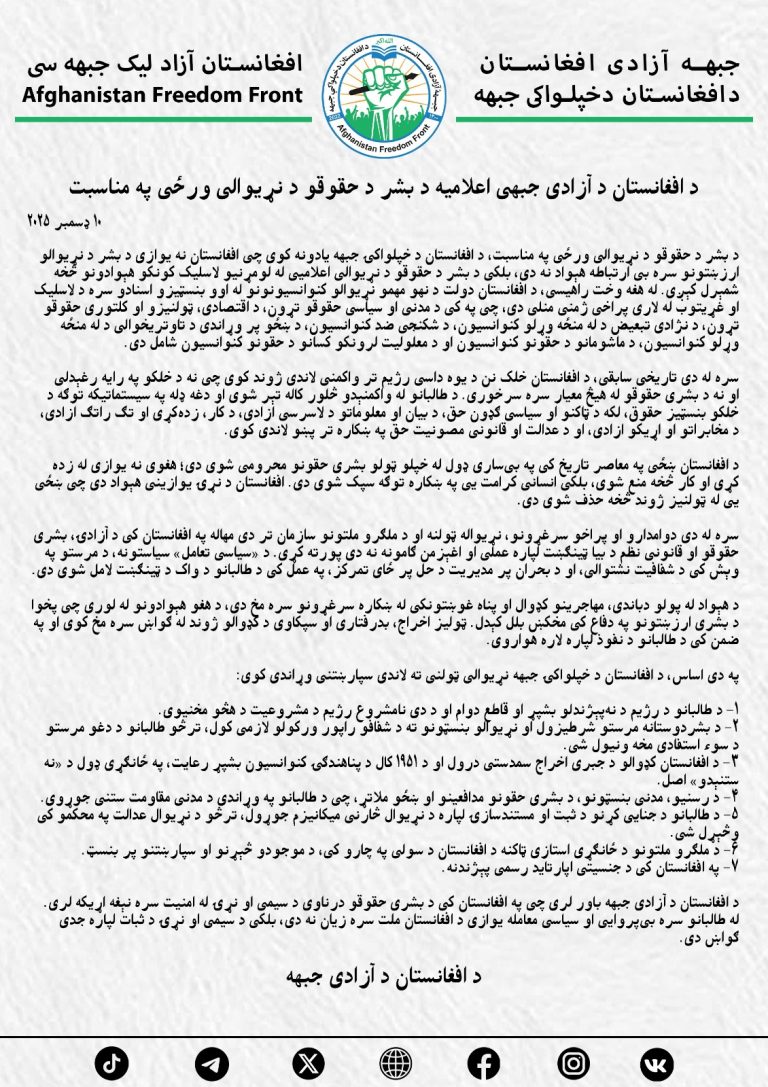 جبهه آزادی افغانستان
د افغانستان دخپلواکۍ جبهه
افغانستان آزاد لیک جبهه سی
Afghanistan Freedom Front
الله اکبر
Afghanistan Freedom Front
د افغانستان د آزادی جبهې اعلامیه د بشر د حقوقو د نړیوالې ورځې په مناسبت
۱۰ ډسمبر ۲۰۲۵
د بشر د حقوقو د نړیوالې ورځې په مناسبت، د افغانستان د خپلواکۍ جبهه یادونه کوي چې افغانستان نه یوازې د بشر د نړیوالو
ارزښتونو سره بې ارتباطه هېواد نه دی، بلکې د بشر د حقوقو د نړیوالې اعلامیې له لومړنیو لاسلیک کونکو هېوادونو څخه
شمېرل کېږي. له هغه وخت راهیسې، د افغانستان دولت د نهو مهمو نړیوالو کنوانسیونونو له اوو بنسټیزو اسنادو سره د لاسلیک
او غړیتوب له لارې پراخې ژمنې منلې دي، چې په کې د مدني او سیاسي حقوقو تړون، د اقتصادي، ټولنیزو او کلتوري حقوقو
تړون، د نژادي تبعیض د له منځه وړلو کنوانسیون، د شکنجې ضد کنوانسیون، د ښځو پر وړاندې د تاوتریخوالي د له منځه
وړلو کنوانسیون، د ماشومانو د حقونو کنوانسیون او د معلولیت لرونکو کسانو د حقونو کنوانسیون شامل دي.
سره له دې تاریخي سابقې، د افغانستان خلک نن د یوه داسې رژیم تر واکمنۍ لاندې ژوند کوي چې نه د خلکو په رایه رغېدلی
او نه د بشري حقوقو له هیڅ معیار سره سرخوري. د طالبانو له واکمنېدو څلور کاله تېر شوي او دغه ډله په سیستماتیکه توګه د
خلکو بنسټیز حقوق، لکه د ټاکنو او سیاسي ګډون حق، د بیان او معلوماتو د لاسرسي آزادي، د کار، زده‌کړې او تګ راتګ آزادي،
د مخابراتو او اړیکو آزادي، او د عدالت او قانوني مصونیت حق په ښکاره تر پښو لاندې کوي.
د افغانستان ښځې په معاصر تاریخ کې په بې‌ساري ډول له خپلو ټولو بشري حقونو محرومې شوې دي؛ هغوی نه یوازې له زده
کړې او کار څخه منع شوي، بلکې انساني کرامت یې په ښکاره توګه سپک شوی دی. افغانستان د نړۍ یوازینی هېواد دی چې ښځې
یې له ټولنیز ژوند څخه حذف شوې دي.
سره له دې دوامدارو او پراخو سرغړونو، نړیواله ټولنه او د ملګرو ملتونو سازمان تر دې مهاله په افغانستان کې د آزادۍ، بشري
حقوقو او قانوني نظم د بیا ټینګښت لپاره عملي او اغېزمن ګامونه نه دي پورته کړي. د «سیاسي تعامل» سیاستونه، د مرستو په
وېش کې د شفافیت نشتوالی، او د بحران پر مدیریت د حل پر ځای تمرکز، په عمل کې د طالبانو د واک د ټینګښت لامل شوی دی.
د هېواد له پولو دباندې، مهاجرینو کډوال او پناه غوښتونکي له ښکاره سرغړونو سره مخ دي، د هغو هېوادونو له لوري چې پخوا
د بشري ارزښتونو په دفاع کې مخکښ بلل کېدل. ټولیز اخراج، بدرفتاري او سپکاوی د کډوالو ژوند له ګواښ سره مخ کوي او په
ضمن کې د طالبانو د نفوذ لپاره لاره هواروي.
په دې اساس، د افغانستان د خپلواکۍ جبهه نړیوالې ټولنې ته لاندې سپارښتنې وړاندې کوي:
۱- د طالبانو د رژیم د نه‌پېژندلو بشپړ او قاطع دوام او د دې نامشروع رژیم د مشروعیت د هڅو مخنیوی.
۲- د بشردوستانه مرستو شرطیزول او نړیوالو بنسټونو ته د شفافو راپور ورکولو لازمي کول، ترڅو طالبانو د دغو مرستو
د سوء استفادې مخه ونیول شي.
۳- د افغانستان کډوالو د جبري اخراج سمدستي درول او د ۱۹۵۱ کال د پناهندګۍ کنوانسیون بشپړ رعایت، په ځانګړي ډول د «نه
ستنېدو» اصل.
۴- د رسنیو، مدني بنسټونو، د بشري حقونو مدافعینو او ښځو ملاتړ، چې د طالبانو په وړاندې د مدني مقاومت ستنې جوړوي.
۵- د طالبانو د جنایي کړنو د ثبت او مستندسازۍ لپاره د نړیوال څارنې میکانیزم جوړول، ترڅو د نړیوال عدالت په محکمو کې
وڅېړل شي.
۶- د ملګرو ملتونو د ځانګړي استازي ټاکنه د افغانستان د سولې په چارو کې، د موجودو څېړنو او سپارښتنو پر بنسټ.
۷- په افغانستان کې د جنسیتي اپارتاید رسمي پېژندنه.
د افغانستان د آزادۍ جبهه باور لري چې په افغانستان کې د بشري حقوقو درناوی د سیمې او نړۍ له امنیت سره نېغه اړیکه لري.
له طالبانو سره بې‌پروایي او سیاسي معامله یوازې د افغانستان ملت سره زیان نه دی، بلکې د سیمې او نړۍ د ثبات لپاره جدي
ګواښ دی.
د افغانستان د آزادی جبهه